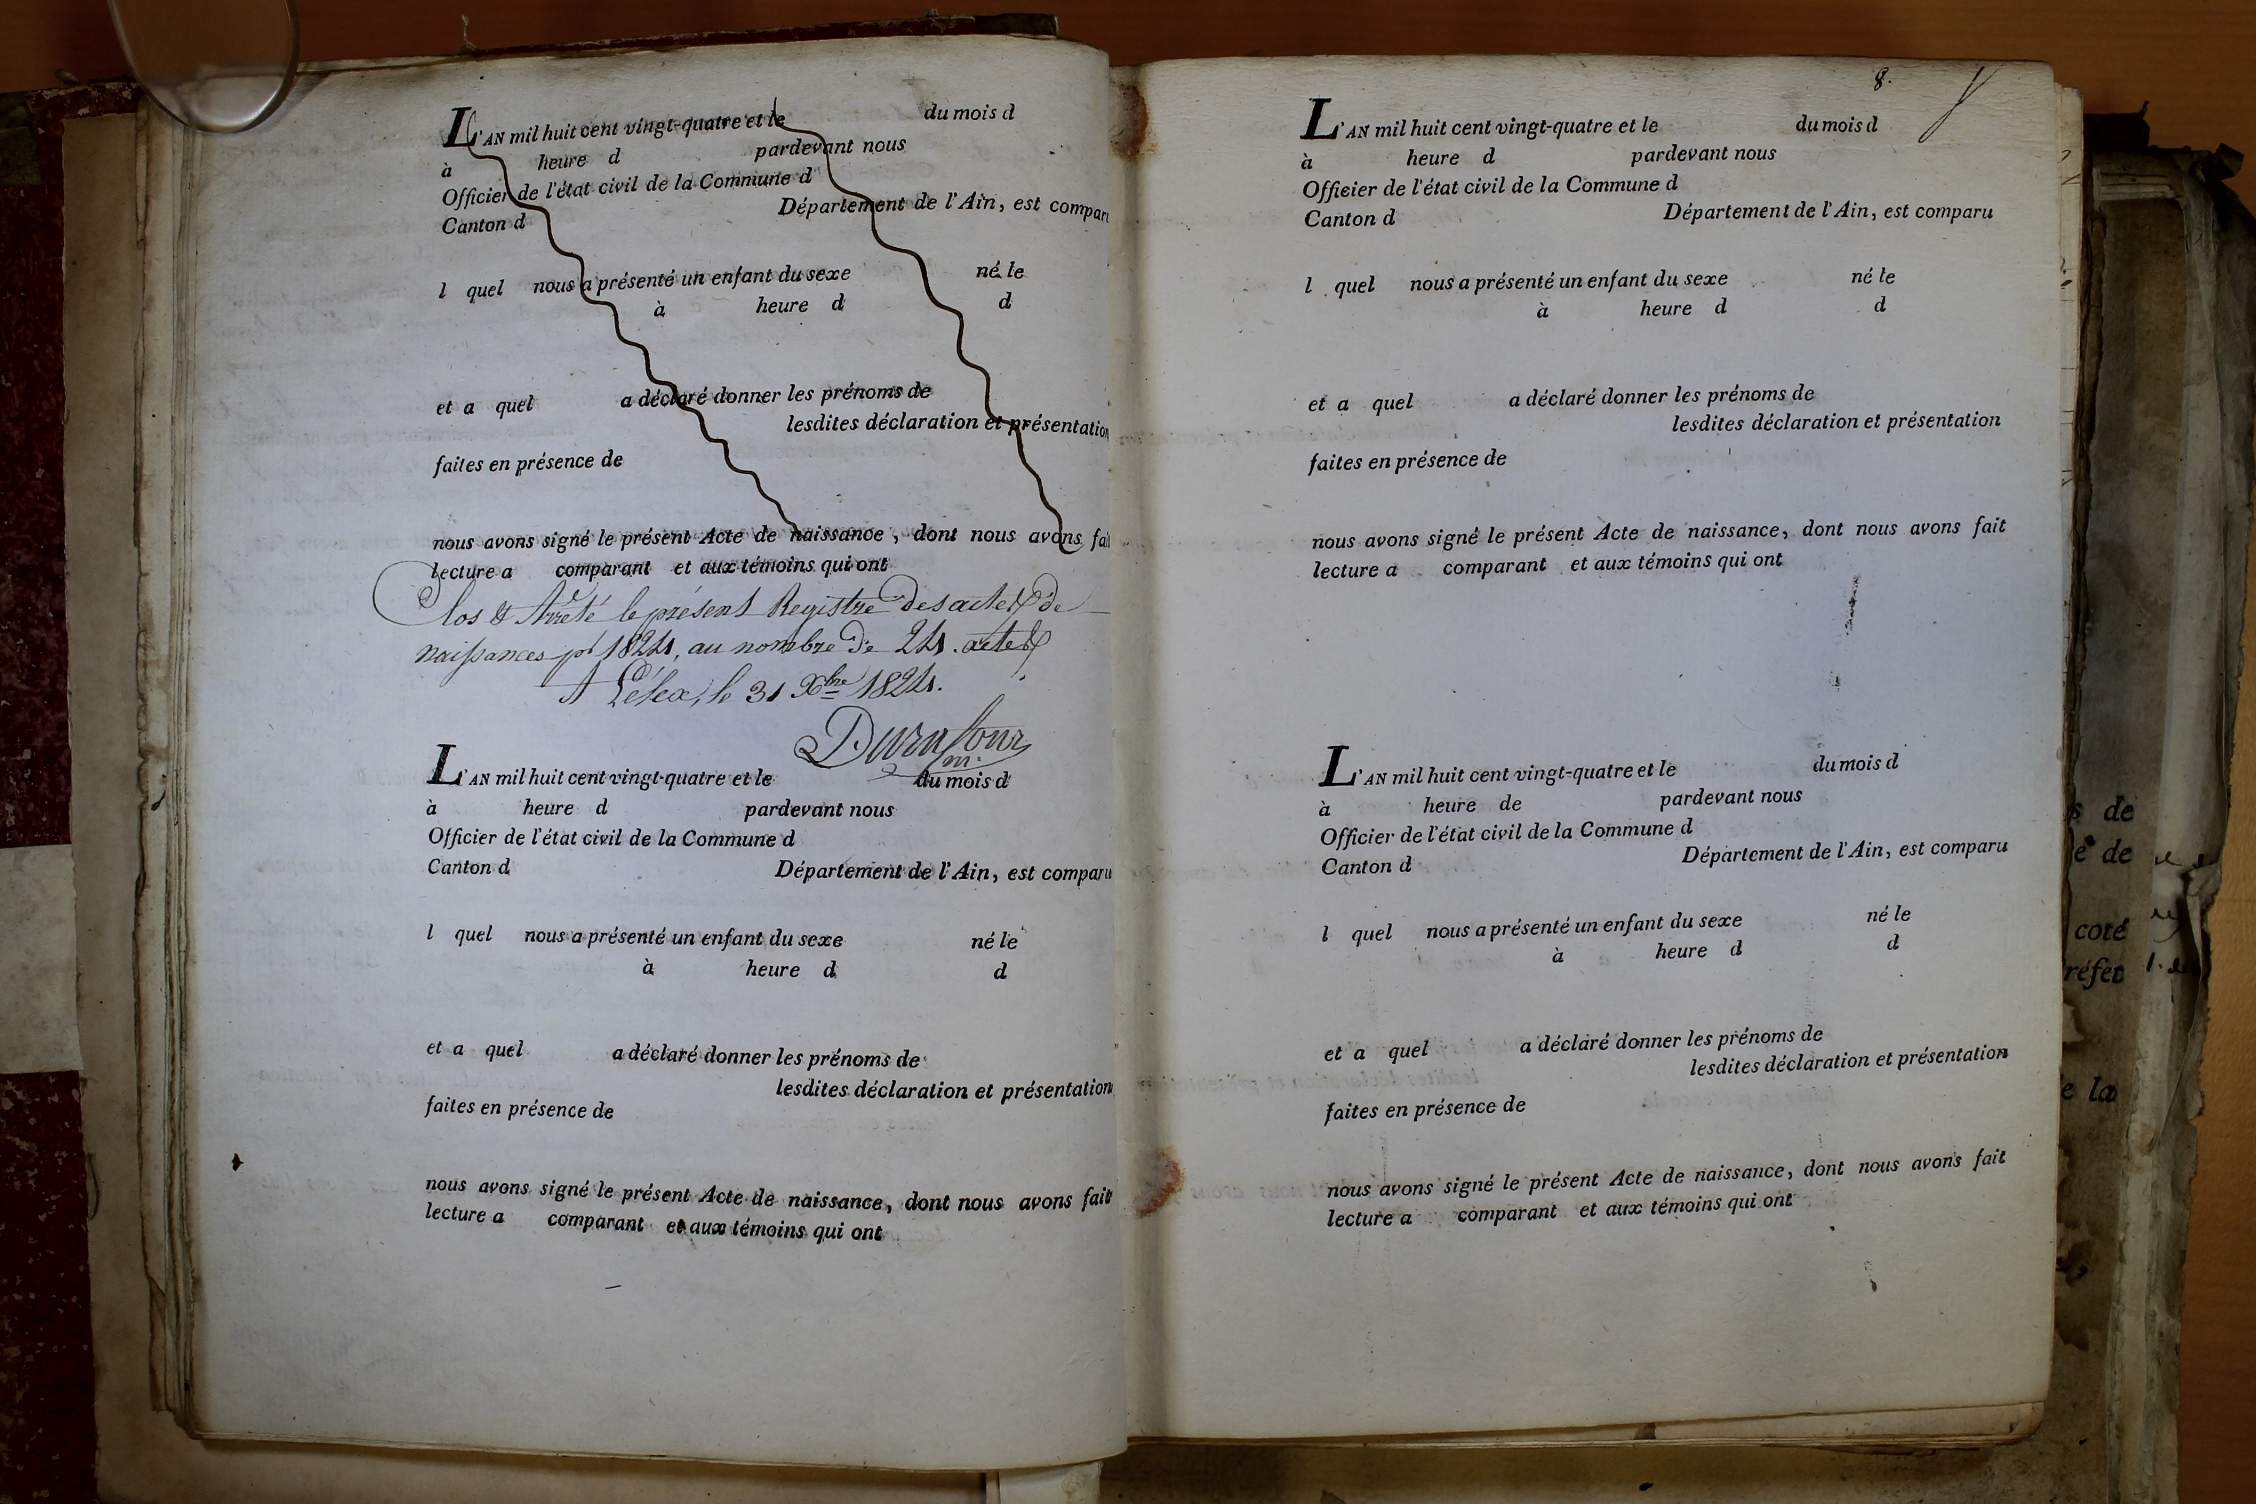 L'AN mil huit cent vingt-quatre et le du mois d
à heure d pardevant nous
Officier de l'état civil de la Commune d
Canton d Département de l'Ain, est comparu
l quel nous a présenté un enfant du sexe né le
à heure d d
et a quel a déclaré donner les prénoms de
lesdites déclaration et présentation
faites en présence de
nous avons signé le présent Acte de naissance, dont nous avons fait
lecture a comparant et aux témoins qui ont
Clos & Arrêté le présent Registre des actes de
naissances pr 1824, au nombre de 24. actes
A Lélex, le 31 Xbre 1824.
Duraffour
m.
L'AN mil huit cent vingt-quatre et le du mois d
à heure d pardevant nous
Officier de l'état civil de la Commune d
Canton d Département de l'Ain, est comparu
l quel nous a présenté un enfant du sexe né le
à heure d d
et a quel a déclaré donner les prénoms de
lesdites déclaration et présentation
faites en présence de
nous avons signé le présent Acte de naissance, dont nous avons fait
lecture a comparant et aux témoins qui ont
8.
L'AN mil huit cent vingt-quatre et le du mois d
à heure d pardevant nous
Officier de l'état civil de la Commune d
Canton d Département de l'Ain, est comparu
l quel nous a présenté un enfant du sexe né le
à heure d d
et a quel a déclaré donner les prénoms de
lesdites déclaration et présentation
faites en présence de
nous avons signé le présent Acte de naissance, dont nous avons fait
lecture a comparant et aux témoins qui ont
L'AN mil huit cent vingt-quatre et le du mois d
à heure de pardevant nous
Officier de l'état civil de la Commune d
Canton d Département de l'Ain, est comparu
l quel nous a présenté un enfant du sexe né le
à heure d d
et a quel a déclaré donner les prénoms de
lesdites déclaration et présentation
faites en présence de
nous avons signé le présent Acte de naissance, dont nous avons fait
lecture a comparant et aux témoins qui ont
s de
e de
coté
réfet
e la